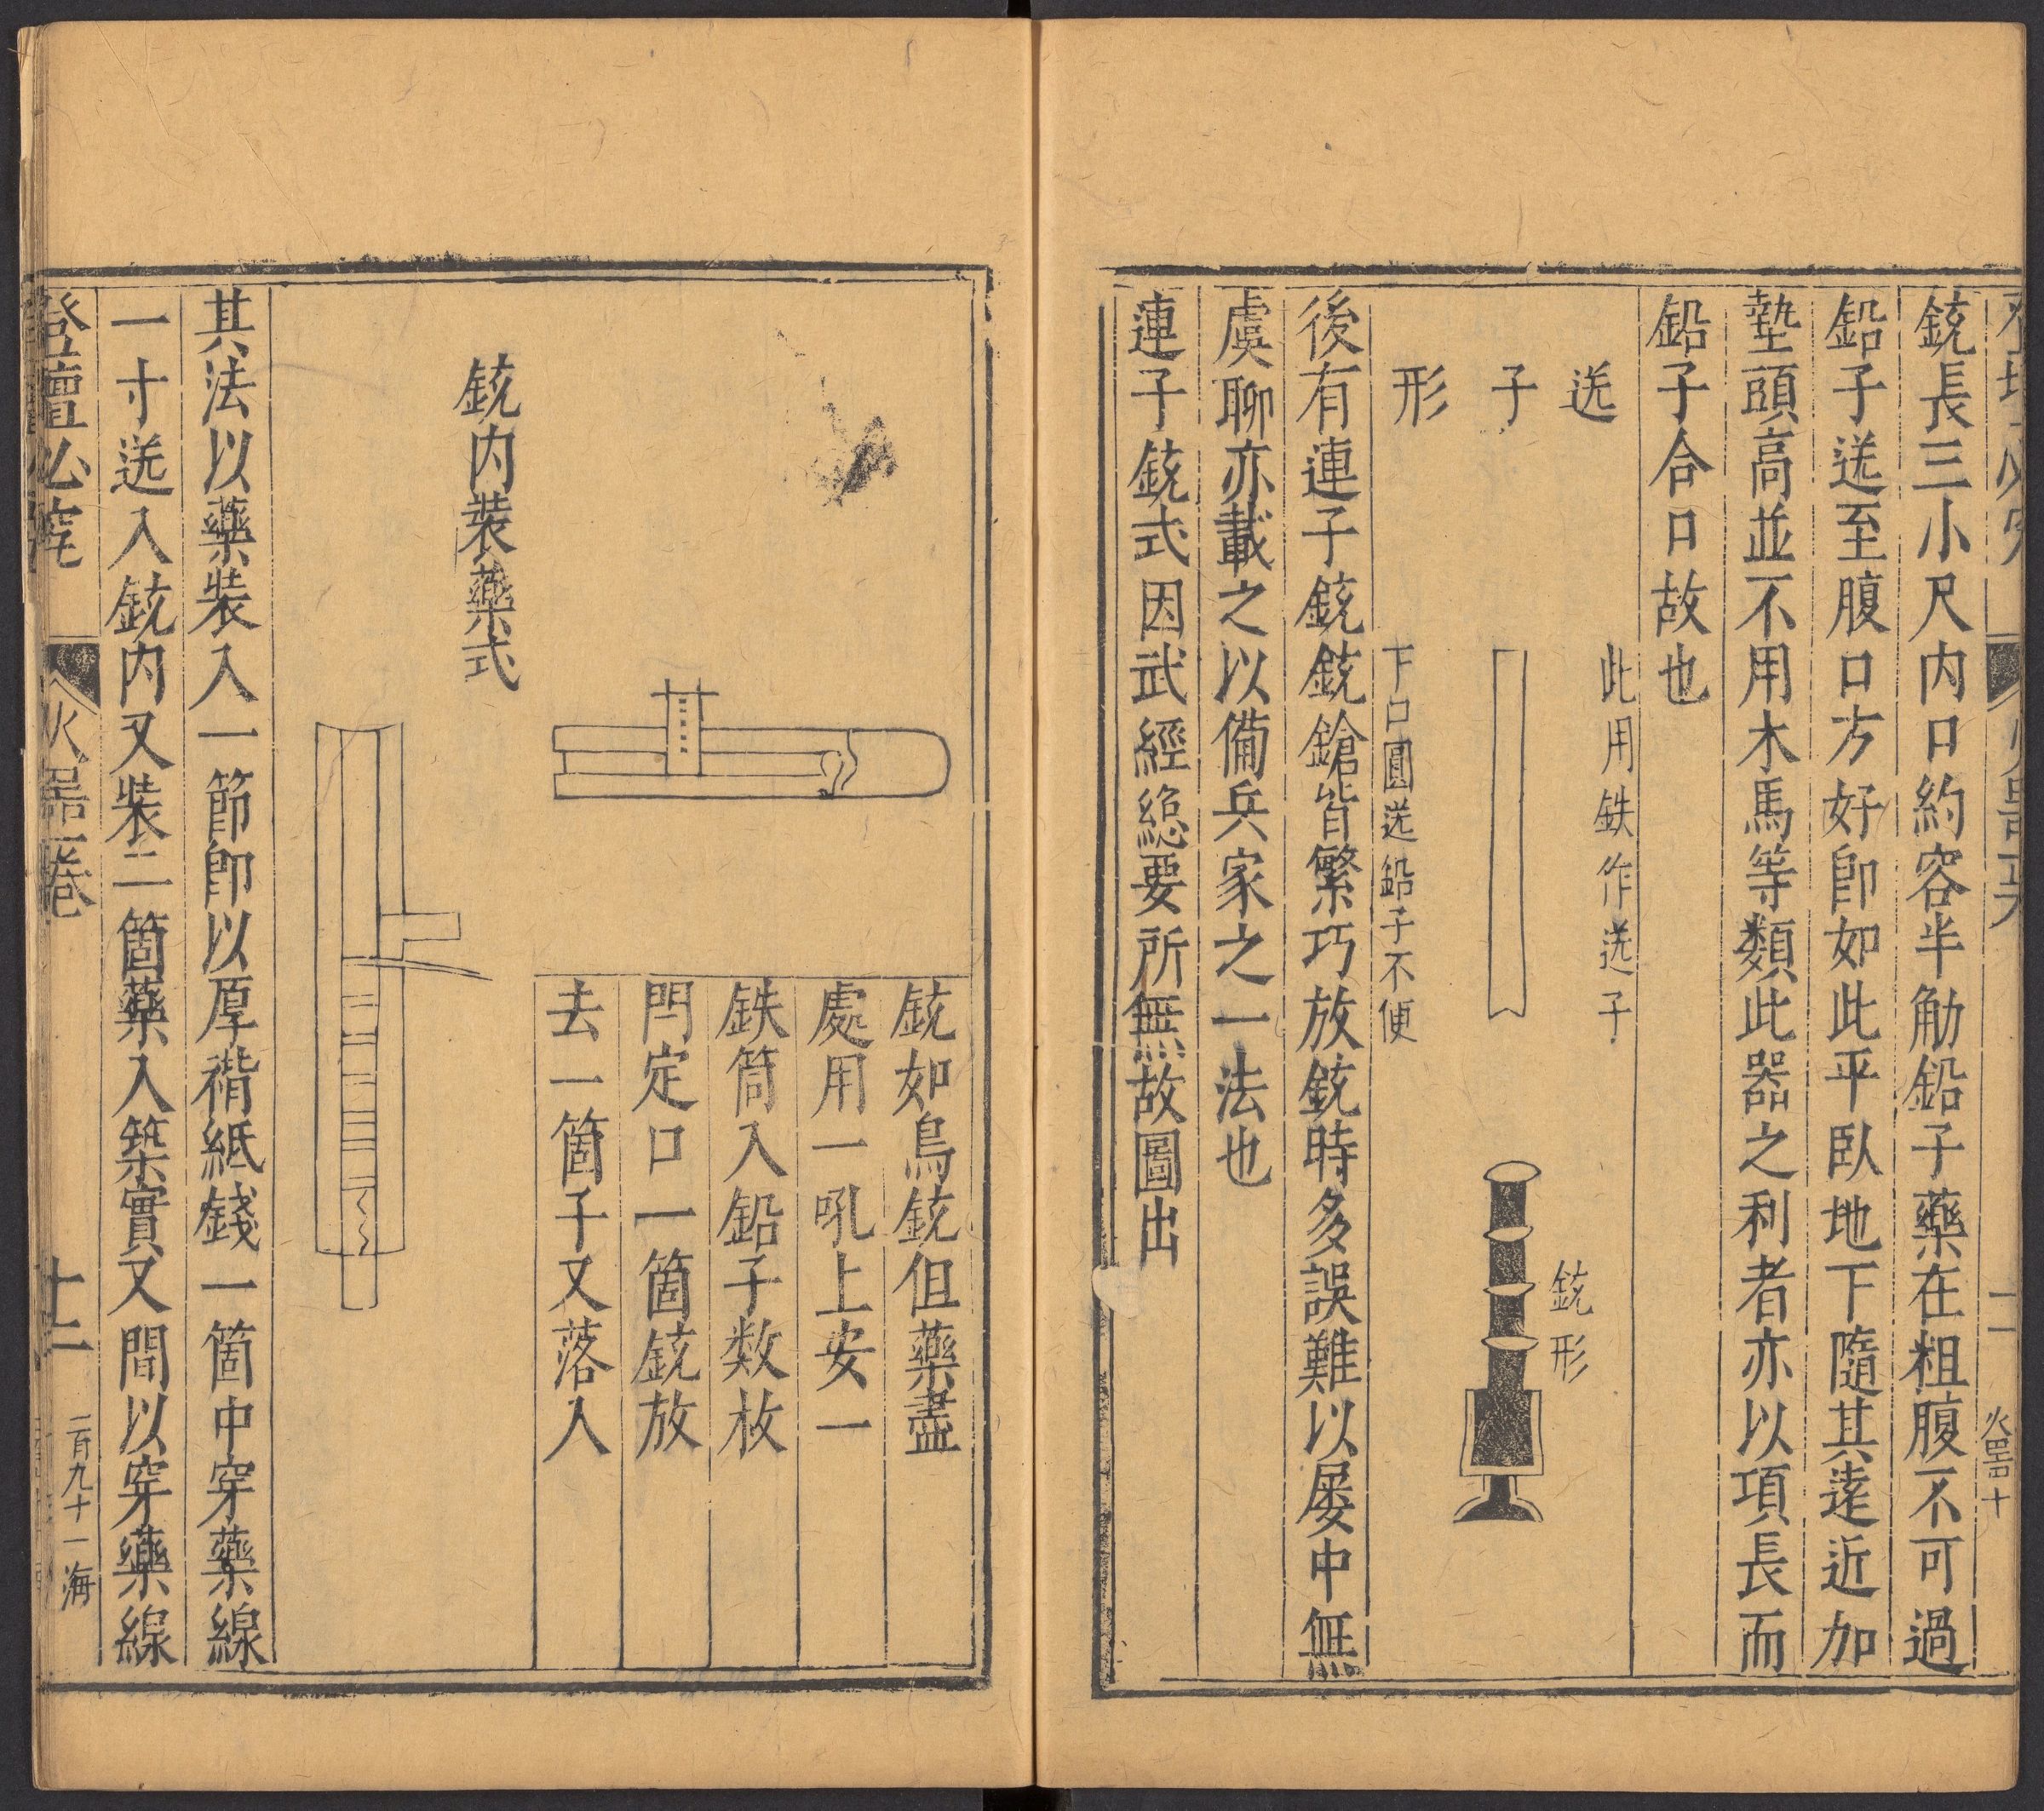 火噐十
銃長三小尺内口約容半觔鉛子藥在粗腹不可過
鉛子送至腹口方好卽如此平臥地下隨其逺近加
墊頭高並不用木馬等類此器之利者亦以項長而
鉛子合口故也
送子形
此用鉄作送子
下口圓送鉛子不便
銃形
後有連子銃銃鎗皆繁巧放銃時多誤難以屡中無
虞聊亦載之以備兵家之一法也
連子銃式因武經緫要所無故圖出
銃如鳥銃但藥盡
處用一吼上安一
鉄筒入鉛子数枚
閂定口一箇銃放
去一箇子又落入
銃内裝藥式
其法以藥裝入一節卽以厚褙紙錢一箇中穿藥線
一寸送入銃内又裝二箇藥入築實又間以穿藥線
登壇必究
火噐二卷
十二
二百九十一 海